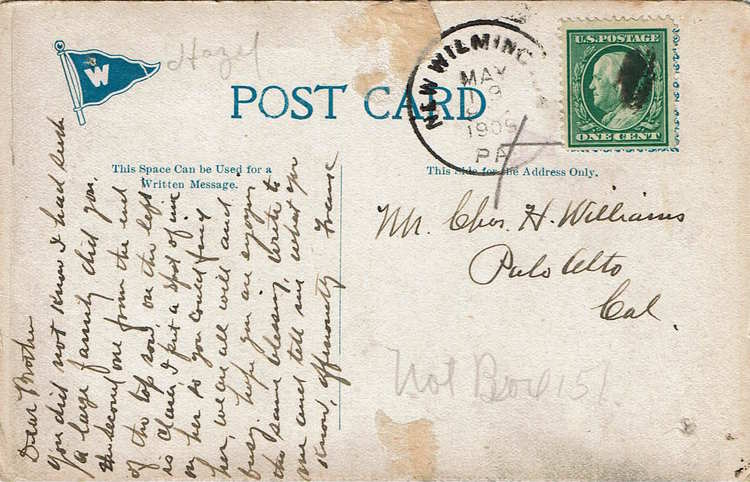 W
Hazel
POST CARD
NEW WILMING
MAY
19
1909
PA
U.S. POSTAGE
ONE CENT
This Space Can be Used for a
Written Message.
This Side for the Address Only.
Dear Brother
you did not know I had such
a large family did you.
the second one from the end
of the top row on the left
is Clara I put a spot of ink
on her so you could find
her, we are all well and
busy. hope you are enjoying
the same blessing. write to
me and tell me what you
know, affectionately Frank
Mr. Chas. H. Williams
Palo Alto
Cal.
Not Box 151